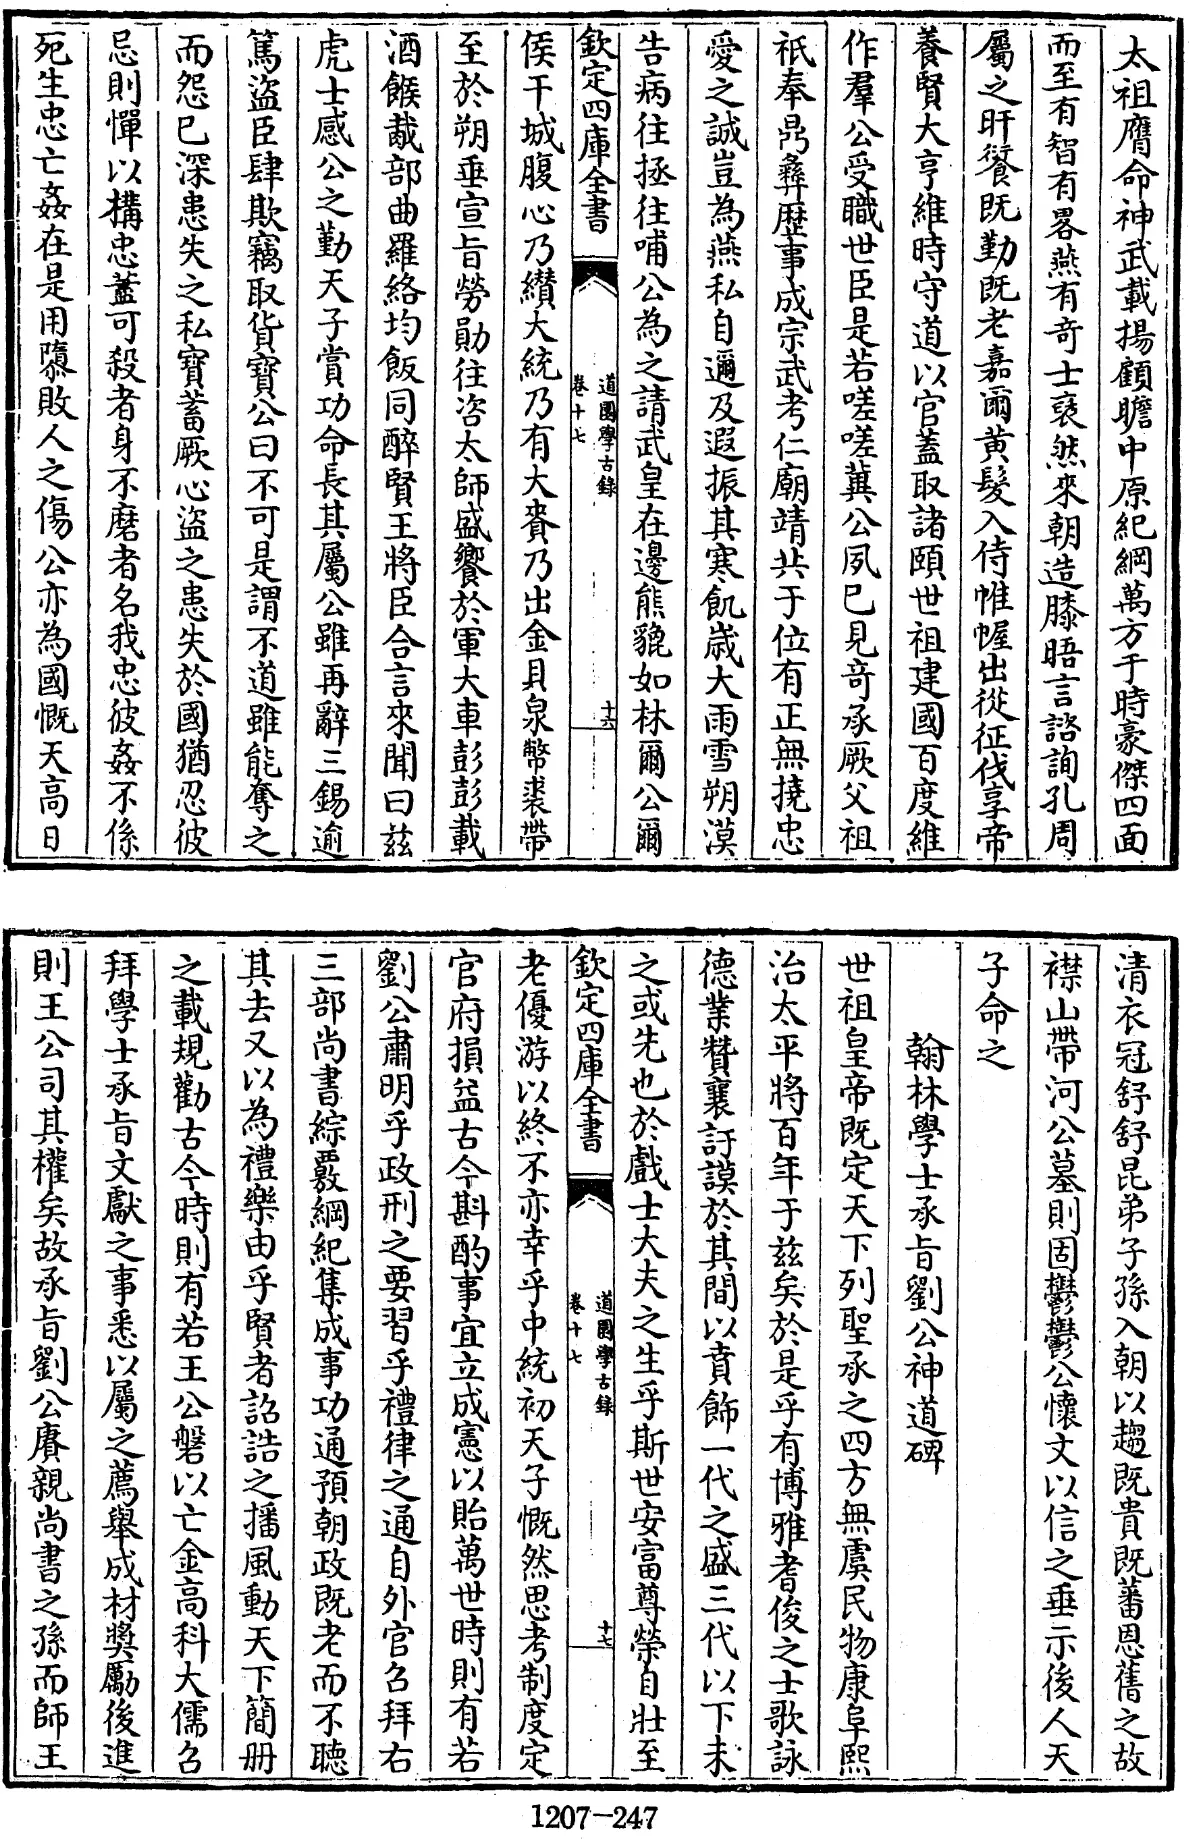 太祖膺命神武載揚顧瞻中原紀綱萬方于時豪傑四面
而至有智有畧燕有奇士裒然來朝造膝晤言諮詢孔周
屬之旰餐既勤既老嘉爾黄髮入侍帷幄出從征伐享帝
養賢大亨維時守道以官蓋取諸頤世祖建國百度維
作羣公受職世臣是若嗟嗟冀公夙已見奇承厥父祖
祇奉鼎彝歷事成宗武考仁廟靖共于位有正無撓忠
愛之誠豈為燕私自邇及遐振其寒飢歲大雨雪朔漠
告病往拯往哺公為之請武皇在邊熊貔如林爾公爾
欽定四庫全書
道園學古錄
卷十七
十六
侯干城腹心乃纘大統乃有大賚乃出金貝泉幣裘帶
至於朔垂宣旨勞勛往咨太師盛饗於軍大車彭彭載
酒餱胾部曲羅絡均飯同醉賢王將臣合言來聞曰兹
虎士感公之勤天子賞功命長其屬公雖再辭三錫逾
篤盜臣肆欺竊取貨寶公曰不可是謂不道雖能奪之
而怨已深患失之私寶蓄厥心盜之患失於國猶忍彼
忌則憚以構忠藎可殺者身不磨者名我忠彼姦不係
死生忠亡姦在是用隳敗人之傷公亦為國慨天高日
清衣冠舒舒昆弟子孫入朝以趨既貴既蕃恩舊之故
襟山帶河公墓則固鬱鬱公懷文以信之垂示後人天
子命之
翰林學士承旨劉公神道碑
世祖皇帝既定天下列聖承之四方無虞民物康阜熙
治太平將百年于兹矣於是乎有博雅耆俊之士歌詠
德業贊襄訏謨於其間以賁飾一代之盛三代以下未
之或先也於戲士大夫之生乎斯世安富尊榮自壯至
欽定四庫全書
道園學古錄
卷十七
十七
老優游以終不亦幸乎中統初天子慨然思考制度定
官府損益古今斟酌事宜立成憲以貽萬世時則有若
劉公肅明乎政刑之要習乎禮律之通自外官召拜右
三部尚書綜覈綱紀集成事功通預朝政既老而不聽
其去又以為禮樂由乎賢者詔誥之播風動天下簡册
之載規勸古今時則有若王公磐以亡金高科大儒召
拜學士承旨文獻之事悉以屬之薦舉成材奬勵後進
則王公司其權矣故承旨劉公賡親尚書之孫而師王
1207-247